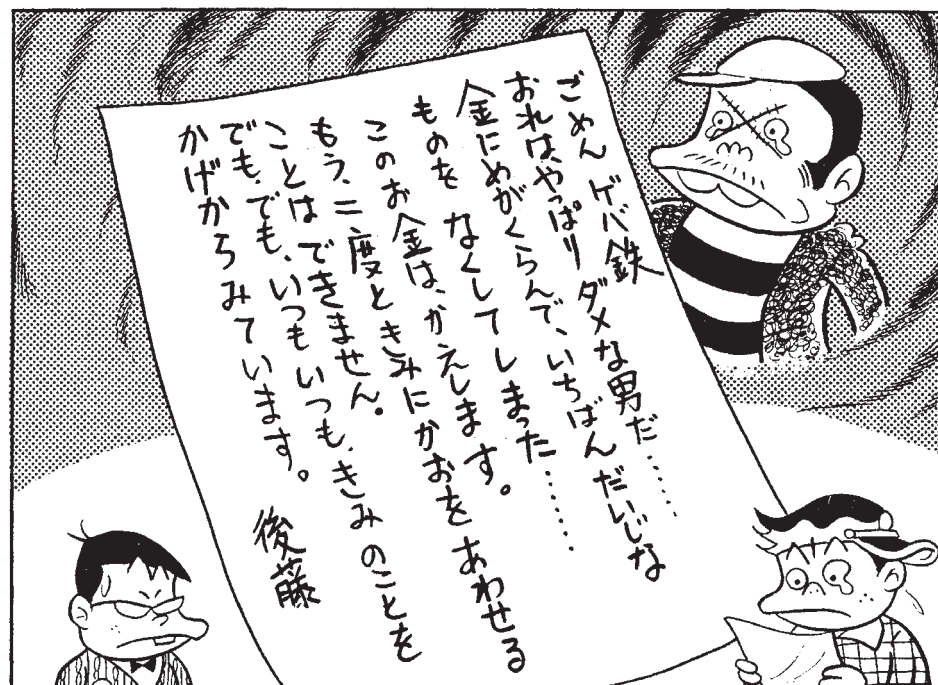 ごめん ゲバ鉄
おれは、やっぱり ダメな男だ……
金にめがくらんで、いちばん だいじな
ものを なくして しまった……
このお金は、かえします。
もう、二度ときみにかおをあわせる
ことは できません。
でも、でも、いつもいつも、きみ のことを
かげからみています。
後藤